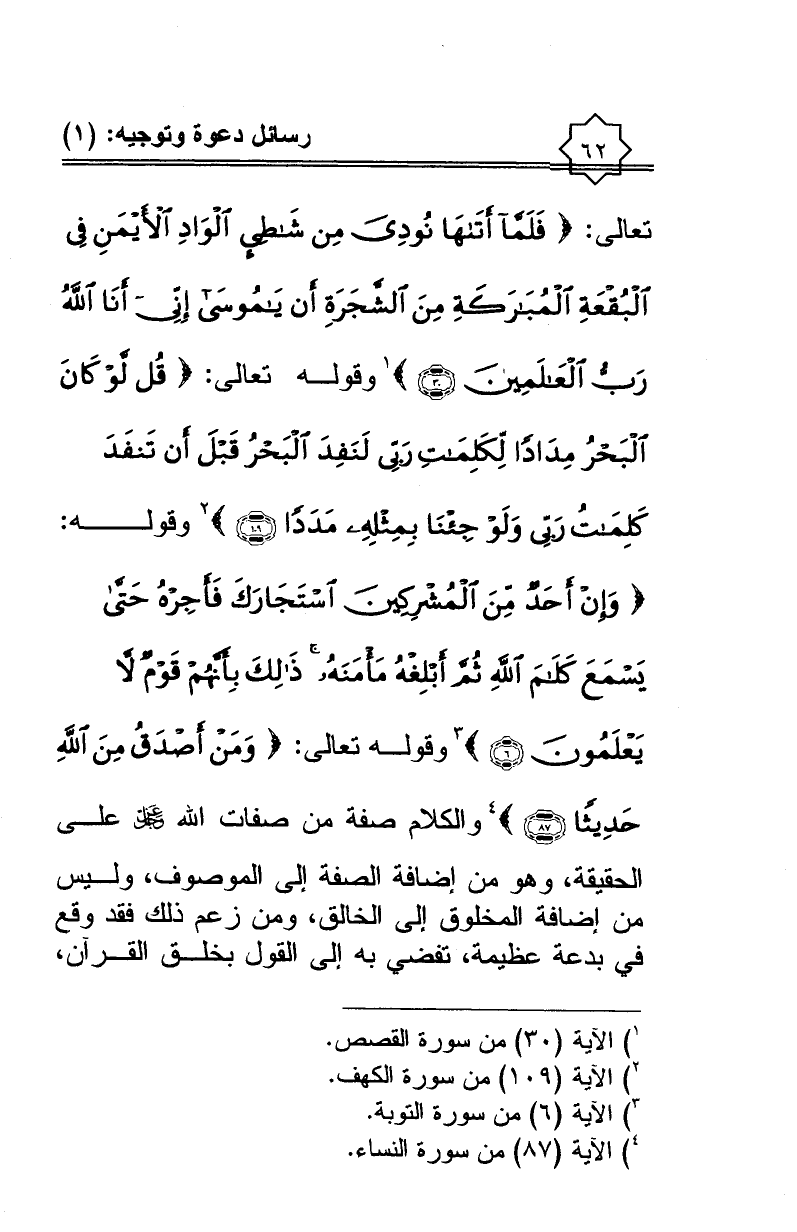 ٦٢ رسائل دعوة وتوجيه: (١)
تعالى: ﴿ فَلَمَّآ أَتَىٰهَا نُودِىَ مِن شَـٰطِئِ ٱلْوَادِ ٱلْأَيْمَنِ فِى
ٱلْبُقْعَةِ ٱلْمُبَـٰرَكَةِ مِنَ ٱلشَّجَرَةِ أَن يَـٰمُوسَىٰٓ إِنِّىٓ أَنَا ٱللَّهُ
رَبُّ ٱلْعَـٰلَمِينَ ٣٠ ﴾١ وقولـه تعالى: ﴿ قُل لَّوْ كَانَ
ٱلْبَحْرُ مِدَادًا لِّكَلِمَـٰتِ رَبِّى لَنَفِدَ ٱلْبَحْرُ قَبْلَ أَن تَنفَدَ
كَلِمَـٰتُ رَبِّى وَلَوْ جِئْنَا بِمِثْلِهِۦ مَدَدًا ١٠٩ ﴾٢ وقولـــه:
﴿ وَإِنْ أَحَدٌ مِّنَ ٱلْمُشْرِكِينَ ٱسْتَجَارَكَ فَأَجِرْهُ حَتَّىٰ
يَسْمَعَ كَلَـٰمَ ٱللَّهِ ثُمَّ أَبْلِغْهُ مَأْمَنَهُۥ ۚ ذَٰلِكَ بِأَنَّهُمْ قَوْمٌ لَّا
يَعْلَمُونَ ٦ ﴾٣ وقولـه تعالى: ﴿ وَمَنْ أَصْدَقُ مِنَ ٱللَّهِ
حَدِيثًا ٨٧ ﴾٤ والكلام صفة من صفات الله ﷻ علـى
الحقيقة، وهو من إضافة الصفة إلى الموصوف، ولـيس
من إضافة المخلوق إلى الخالق، ومن زعم ذلك فقد وقع
في بدعة عظيمة، تفضي به إلى القول بخلـق القـرآن،
١) الآية (٣٠) من سورة القصص.
٢) الآية (١٠٩) من سورة الكهف.
٣) الآية (٦) من سورة التوبة.
٤) الآية (٨٧) من سورة النساء.